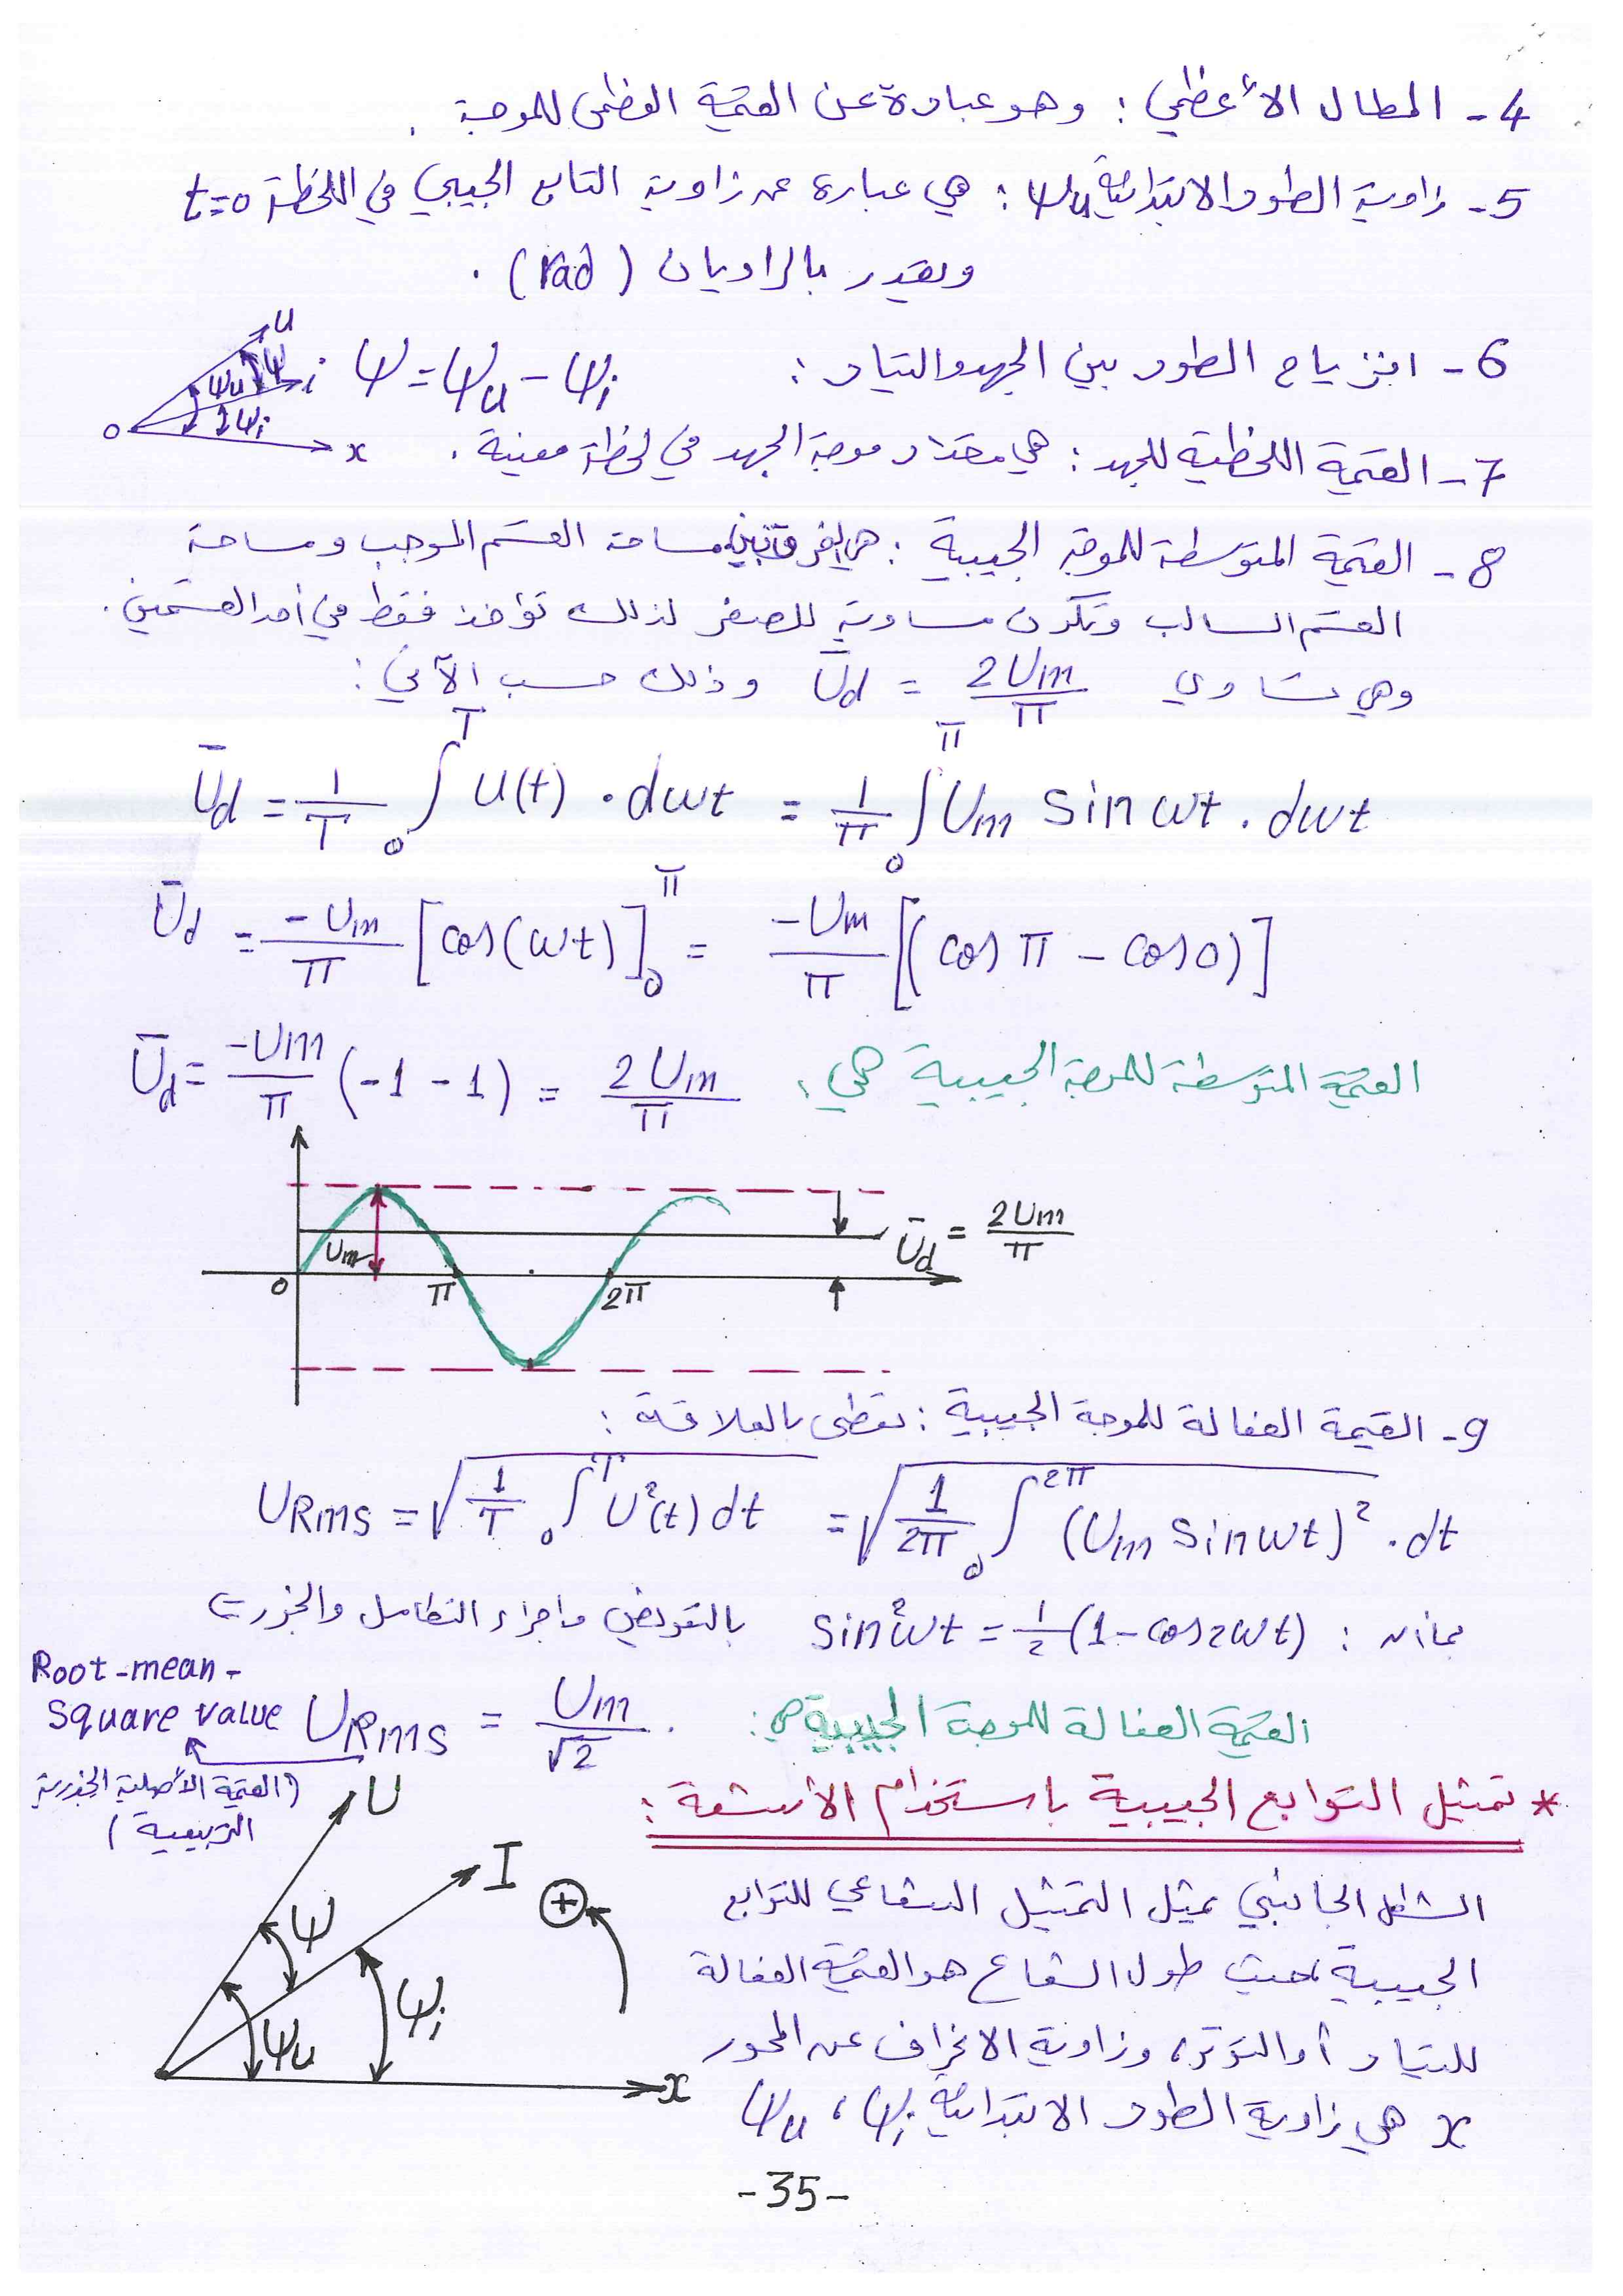 4- المطال الأعظمي : وهو عبارة عن القيمة العظمى للموجة .
5- زاوية الطور الابتدائية ψu : هي عبارة عن زاوية التابع الجيبي في اللحظة t=0
ويقدر بالراديان (rad) .
6- انزياح الطور بين الجهد والتيار : ψ = ψu - ψi
u
i
ψ
ψu
ψi
o
x
7- القيمة اللحظية للجهد : هي مقدار موجة الجهد في لحظة معينة .
8- القيمة المتوسطة للموجة الجيبية : هي الفرق بين مساحة القسم الموجب ومساحة
القسم السالب وتكون مساوية للصفر لذلك تؤخذ فقط في أحد القسمين .
وهي تساوي Ūd = 2Um/π وذلك حسب الآتي :
Ūd = 1/T ∫₀ᵀ u(t) . dωt = 1/π ∫₀^π Um sin ωt . dωt
Ūd = -Um/π [cos(ωt)]₀^π = -Um/π [(cos π - cos 0)]
Ūd = -Um/π (-1 - 1) = 2Um/π القيمة المتوسطة للموجة الجيبية هي :
Um
0
π
2π
Ūd = 2Um/π
9- القيمة الفعالة للموجة الجيبية : تعطى بالعلاقة :
URms = √(1/T ∫₀ᵀ U²(t) dt) = √(1/2π ∫₀^2π (Um sin ωt)² . dt)
بما أن : sin²ωt = 1/2 (1 - cos2ωt) بالتعويض وإجراء التكامل والجذر
Root-mean-
square value
URms = Um/√2 . القيمة الفعالة للموجة الجيبية هي :
(القيمة الأصلية الجذرية
التربيعية)
* تمثيل التوابع الجيبية باستخدام الأشعة :
U
I
+
ψ
ψu
ψi
x
الشكل الجانبي يمثل التمثيل الشعاعي للتوابع
الجيبية بحيث طول الشعاع هو القيمة الفعالة
للتيار أو التوتر، وزاوية الانحراف عن المحور
x هي زاوية الطور الابتدائية ψi ، ψu
-35-